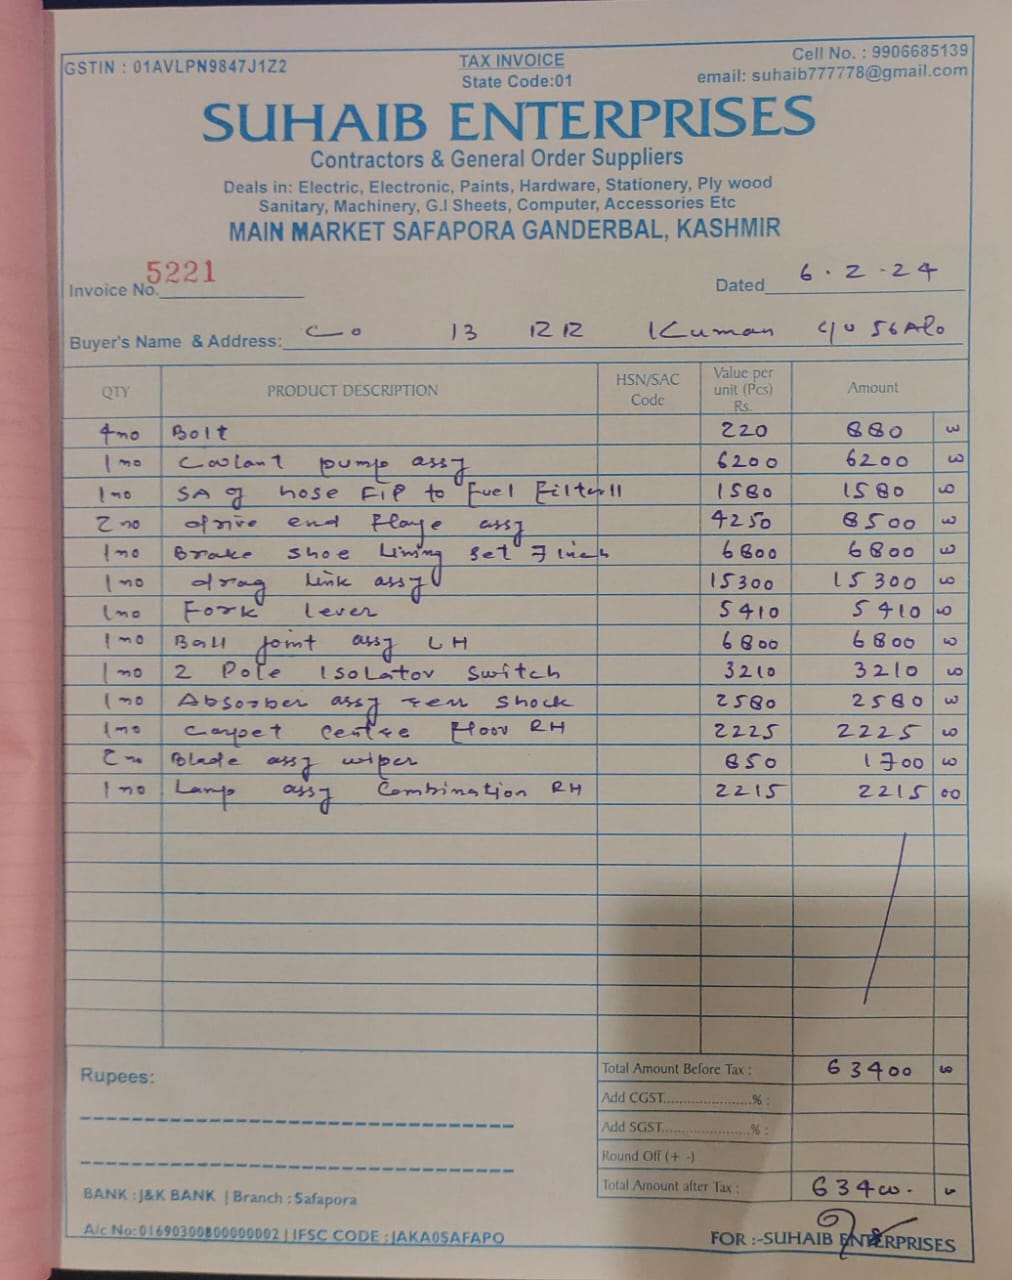 GSTIN : 01AVLPN9847J1Z2
TAX INVOICE
State Code:01
Cell No. : 9906685139
email: suhaib777778@gmail.com
SUHAIB ENTERPRISES
Contractors & General Order Suppliers
Deals in: Electric, Electronic, Paints, Hardware, Stationery, Ply wood
Sanitary, Machinery, G.I Sheets, Computer, Accessories Etc
MAIN MARKET SAFAPORA GANDERBAL, KASHMIR
Invoice No. 5221
Dated 6.2.24
Buyer's Name & Address: Co 13 Kuman C/o 56 APO
QTY PRODUCT DESCRIPTION HSN/SAC Code Value per unit (Pcs) Rs. Amount
4no Bolt 220 880 00
1no Coolant pump assy 6200 6200 00
1no SA of hose FIP to Fuel Filter II 1580 1580 00
2no drive end assy 4250 8500 00
1no Brake Shoe Lining set 7 inch 6800 6800 00
1no drag link assy 15300 15300 00
1no Fork lever 5410 5410 00
1no Ball joint assy LH 6800 6800 00
1no 2 Pole Isolator Switch 3210 3210 00
1no Absorber assy rear Shock 2580 2580 00
1no Carpet Centre Floor RH 2225 2225 00
2no Blade assy wiper 850 1700 00
1no Lamp assy Combination RH 2215 2215 00
Total Amount Before Tax : 63400 00
Rupees:
Add CGST......................% :
Add SGST......................% :
Round Off (+ -)
Total Amount after Tax : 63400.
BANK : J&K BANK | Branch : Safapora
A/c No: 0169030080000002 | IFSC CODE : JAKA0SAFAPO
FOR :-SUHAIB ENTERPRISES